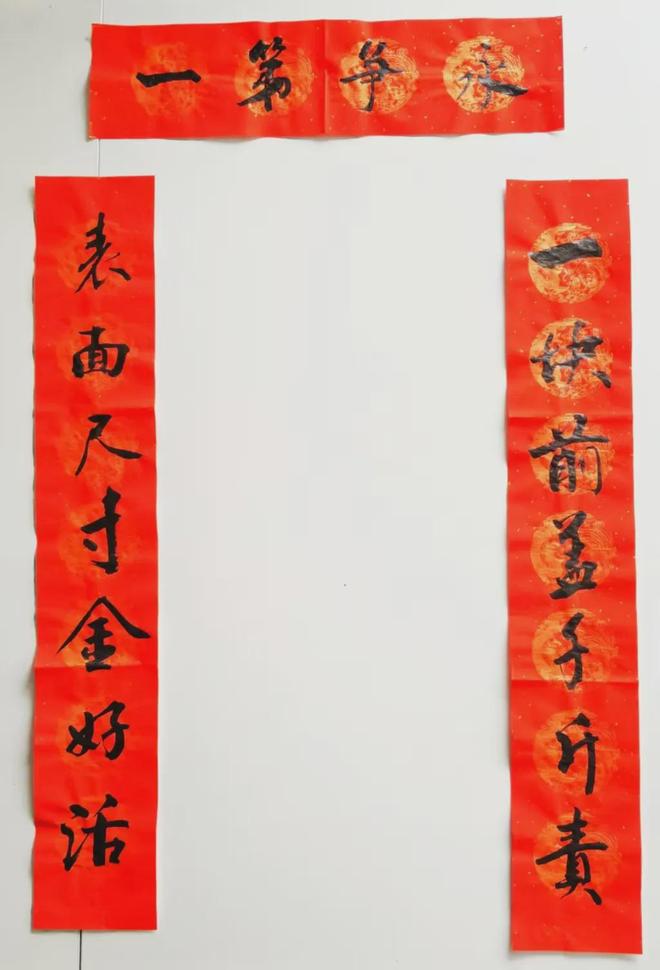 永争第一
一块前盖千斤责
表面尺寸金好活